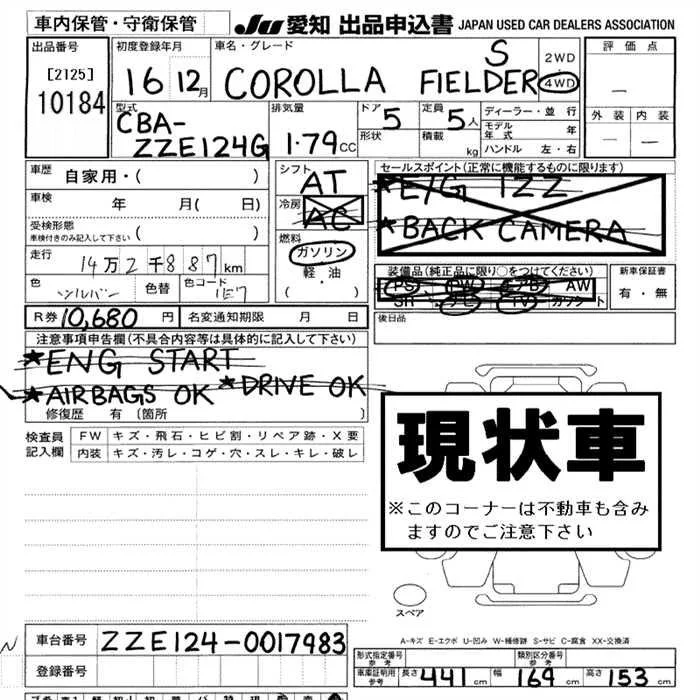 車内保管・守衛保管 JU 愛知 出品申込書 JAPAN USED CAR DEALERS ASSOCIATION
出品番号 初度登録年月 車名・グレード 評価点
[2125] 16 12月 COROLLA FIELDER S 2WD・4WD —
10184
型式 排気量 ドア 定員 ディーラー・並行 外装 内装
CBA-ZZE124G 1.79CC 5 5人 モデル年式 年 — —
形状 積載 kg ハンドル 左・右
車歴 自家用・( ) シフト AT セールスポイント(正常に機能するものに限ります)
車検 年 月( 日) 冷房 AC ★E/G 1ZZ
受検形態 ( ) ★BACK CAMERA
車検付きのみ記入して下さい
走行 14万2千887km 燃料 ガソリン・軽・油 ( )
装備品(純正品に限り○をつけてください) 新車保証書
色 シルバー 色替 色コード 1E7 PS PW AW 有・無
SR TV カセット
R券 10,680円 名変通知期限 月 日 後日品
注意事項申告欄(不具合内容等は具体的に記入して下さい)
★ENG START
★AIRBAGS OK ★DRIVE OK
修復歴 有 〔箇所 〕
検査員記入欄 FW キズ・飛石・ヒビ割・リペア跡・X要
内装 キズ・汚レ・コゲ・穴・スレ・キレ・破レ
現状車
※このコーナーは不動車も含みますのでご注意下さい
スペア
A-キズ E-エクボ U-凹み W-補修跡 S-サビ C-腐食 XX-交換済
車台番号 ZZE124-0017983
登録番号
形式指定番号 参考 類別区分番号 参考
車庫証明用参考 長さ 441cm 幅 169cm 高さ 153cm